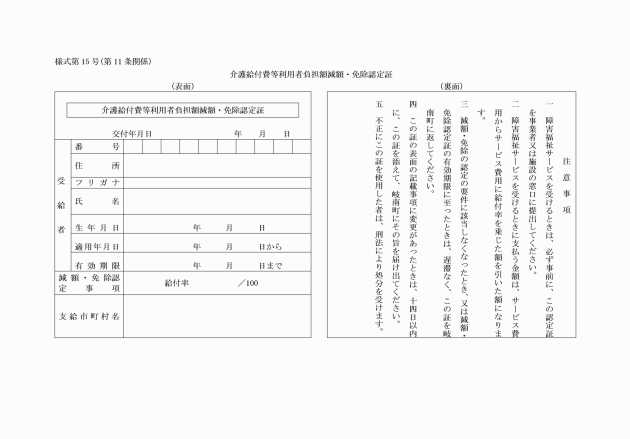 様式第15号(第11条関係)
介護給付費等利用者負担額減額・免除認定証
(表面)
介護給付費等利用者負担額減額・免除認定証
交付年月日 年 月 日
受給者
番号
住所
フリガナ
氏名
生年月日 年 月 日
適用年月日 年 月 日から
有効期限 年 月 日まで
減額・免除認
定事項
給付率 /100
支給市町村名
(裏面)
注意事項
一 障害福祉サービスを受けるときは、必ず事前に、この認定証
を事業者又は施設の窓口に提出してください。
二 障害福祉サービスを受けるときに支払う金額は、サービス費
用からサービス費用に給付率を乗じた額を引いた額になりま
す。
三 減額・免除の認定の要件に該当しなくなったとき、又は減額・
免除認定証の有効期限に至ったときは、遅滞なく、この証を岐
南町に返してください。
四 この証の表面の記載事項に変更があったときは、十四日以内
に、この証を添えて、岐南町にその旨を届け出てください。
五 不正にこの証を使用した者は、刑法により処分を受けます。